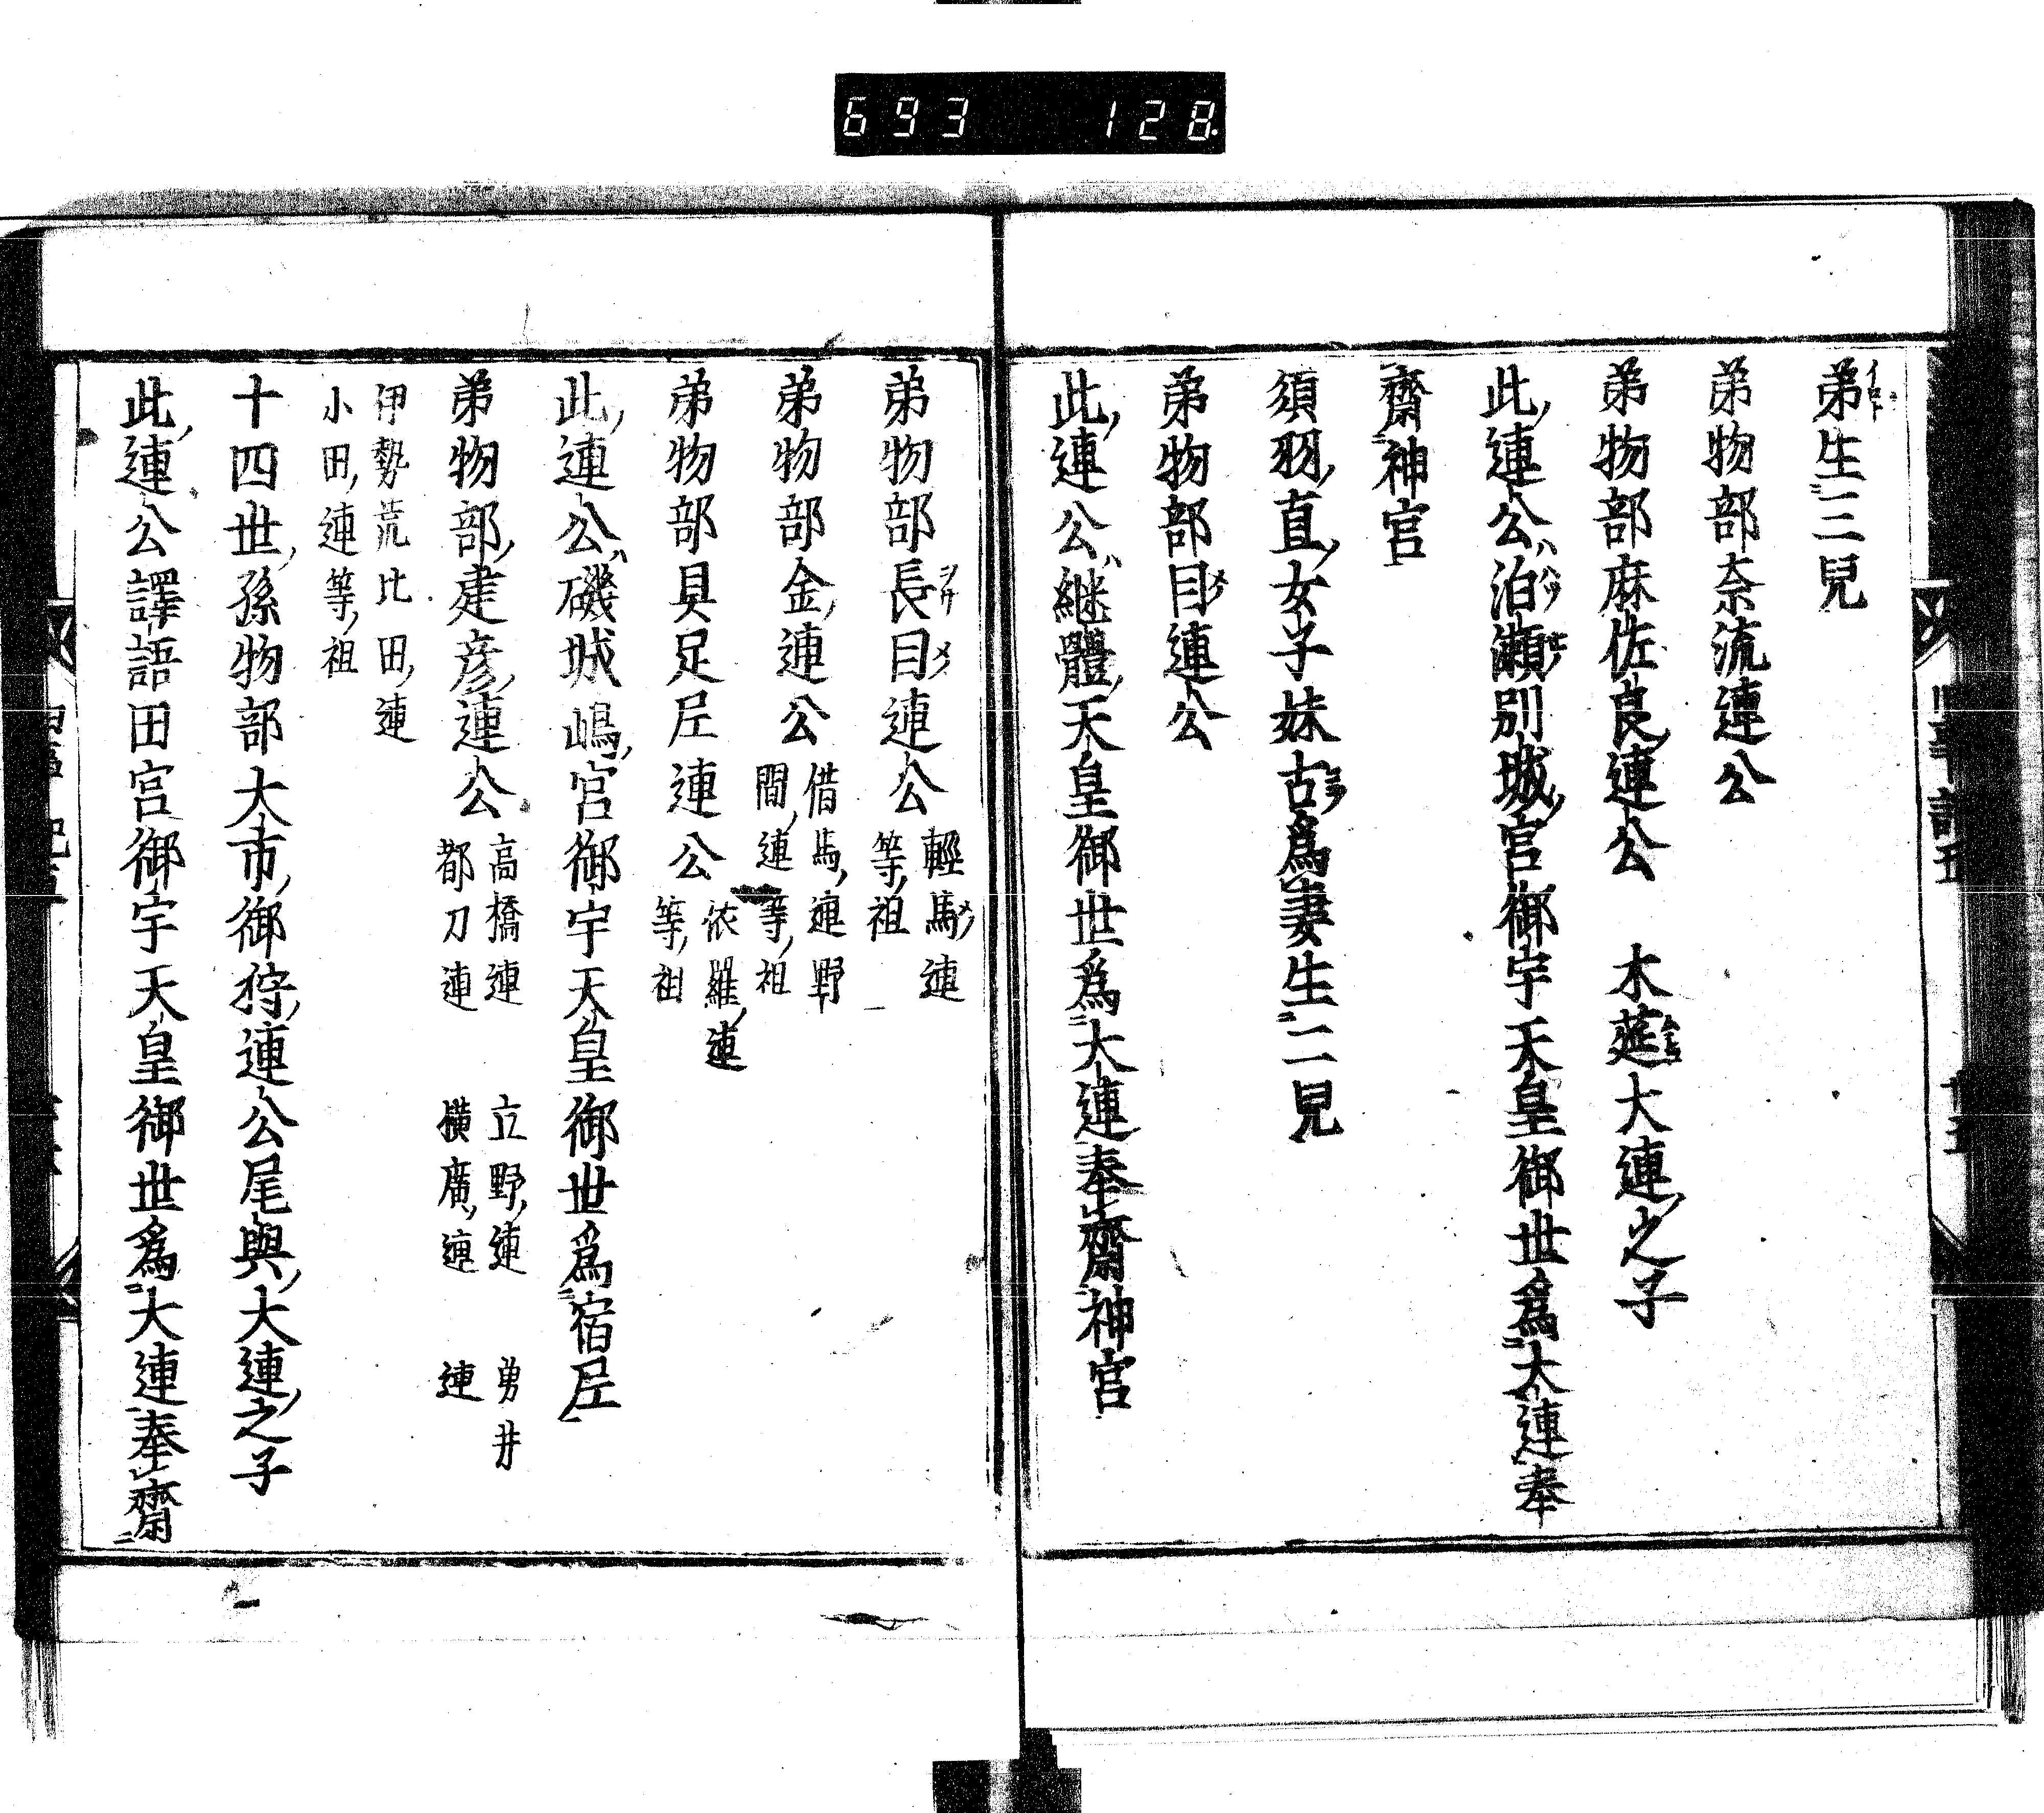 693 128
弟生三兒
弟物部奈流連公
弟物部麻佐良連公 木蓮大連之子
此連公泊瀬別城宮御宇天皇御世爲大連奉
齋神宮
須羽直女子妹古爲妻生二兒
弟物部目連公
此連公継體天皇御世爲大連奉齋神宮
弟物部長目連公 輕馬連等祖
弟物部金連公 借馬連野間連等祖
弟物部呉足尼連公 依羅連等祖
此連公磯城嶋宮御宇天皇御世爲宿尼
弟物部建彦連公 高橋連 立野連 勇井
都刀連 横廣連 連
伊勢荒比田連
小田連等祖
十四世孫物部大市御狩連公尾輿大連之子
此連公譯語田宮御宇天皇御世爲大連奉齋